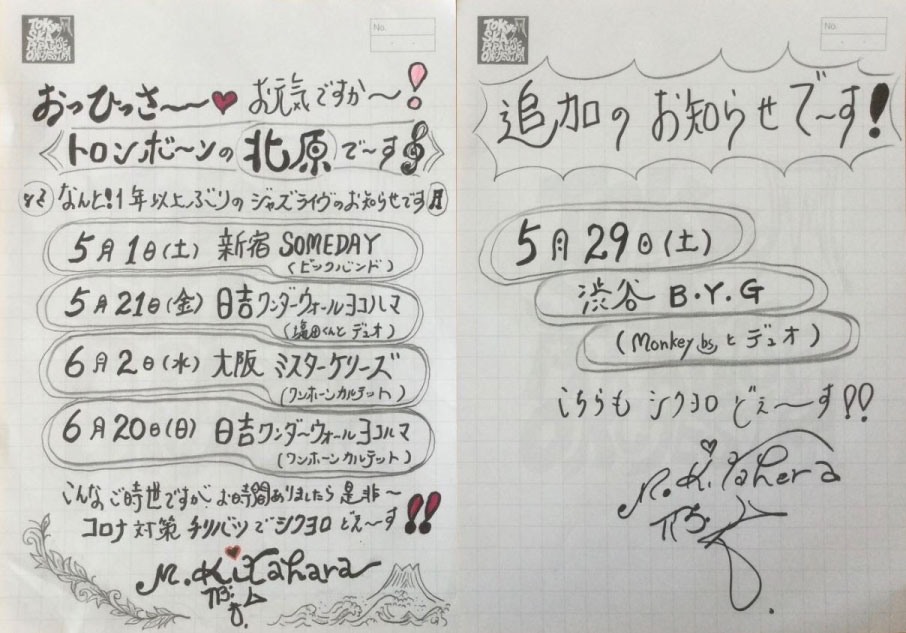 TOKYO SKA PARADISE ORCHESTRA
No.
おっひっさ〜〜♥ お元気ですか〜!
トロンボ〜ンの北原で〜す
なんと!1年以上ぶりのジャズライヴのお知らせです♬
5月1日(土) 新宿 SOMEDAY
(ビックバンド)
5月21日(金) 日吉ワンダーウォールヨコハマ
(塩田くんとデュオ)
6月2日(水) 大阪 ミスターケリーズ
(ワンホーンカルテット)
6月20日(日) 日吉ワンダーウォールヨコハマ
(ワンホーンカルテット)
こんなご時世ですが、お時間ありましたら是非〜
コロナ対策 チリバツでシクヨロどえ〜す!!
M.Kitahara
TB.
TOKYO SKA PARADISE ORCHESTRA
No.
追加のお知らせで〜す!
5月29日(土)
渋谷 B.Y.G
(Monkey bsとデュオ)
こちらもシクヨロどぇ〜す!!
M.Kitahara
TB.